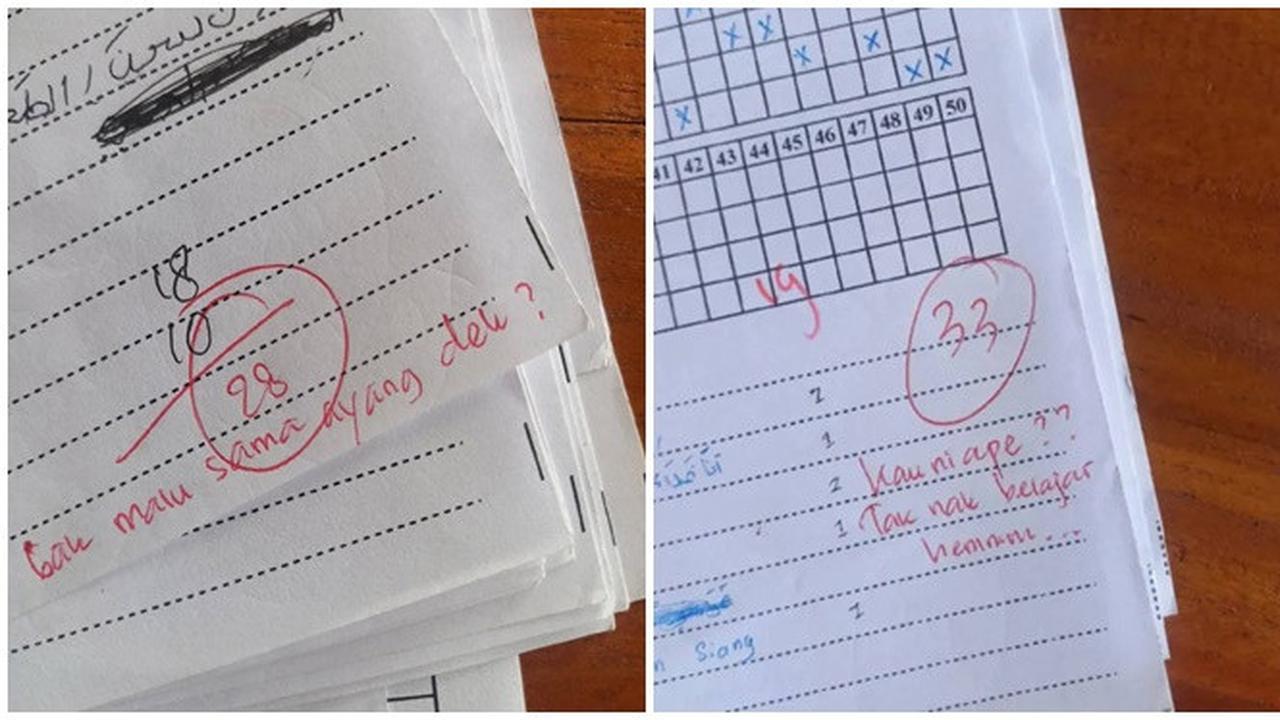 18
10
28
Gak malu sama ayang dek ?
41 42 43 44 45 46 47 48 49 50
19
33
2
1
2
1
Kau ni ape ??
Tak nak belajar
hemmm...
1
n Siang